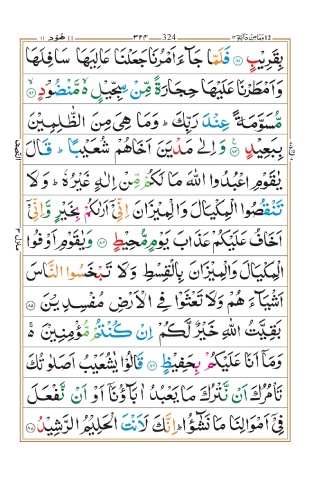 ۱۱ هُوْد ۱۱ ۳۲۴ 324 وَمَا مِنْ دَآبَّةٍ ۱۲
بِقَرِيْبٍ ﴿۸۱﴾ فَلَمَّا جَآءَ اَمْرُنَا جَعَلْنَا عَالِيَهَا سَافِلَهَا
وَاَمْطَرْنَا عَلَيْهَا حِجَارَةً مِّنْ سِجِّيْلٍ ۙ مَّنْضُوْدٍ ﴿۸۲﴾
مُّسَوَّمَةً عِنْدَ رَبِّكَ ؕ وَمَا هِىَ مِنَ الظّٰلِمِيْنَ
بِبَعِيْدٍ ﴿۸۳﴾ وَاِلٰى مَدْيَنَ اَخَاهُمْ شُعَيْبًا ؕ قَالَ
يٰقَوْمِ اعْبُدُوا اللّٰهَ مَا لَكُمْ مِّنْ اِلٰهٍ غَيْرُهٗ ؕ وَلَا
تَنْقُصُوا الْمِكْيَالَ وَالْمِيْزَانَ اِنِّىْۤ اَرٰٮكُمْ بِخَيْرٍ وَّاِنِّىْۤ
اَخَافُ عَلَيْكُمْ عَذَابَ يَوْمٍ مُّحِيْطٍ ﴿۸۴﴾ وَيٰقَوْمِ اَوْفُوا
الْمِكْيَالَ وَالْمِيْزَانَ بِالْقِسْطِ وَلَا تَبْخَسُوا النَّاسَ
اَشْيَآءَهُمْ وَلَا تَعْثَوْا فِى الْاَرْضِ مُفْسِدِيْنَ ﴿۸۵﴾
بَقِيَّتُ اللّٰهِ خَيْرٌ لَّكُمْ اِنْ كُنْتُمْ مُّؤْمِنِيْنَ ۚ
وَمَاۤ اَنَا عَلَيْكُمْ بِحَفِيْظٍ ﴿۸۶﴾ قَالُوْا يٰشُعَيْبُ اَصَلٰوتُكَ
تَاْمُرُكَ اَنْ نَّتْرُكَ مَا يَعْبُدُ اٰبَآؤُنَاۤ اَوْ اَنْ نَّفْعَلَ
فِىْۤ اَمْوَالِنَا مَا نَشٰٓؤُا ؕ اِنَّكَ لَاَنْتَ الْحَلِيْمُ الرَّشِيْدُ ﴿۸۷﴾